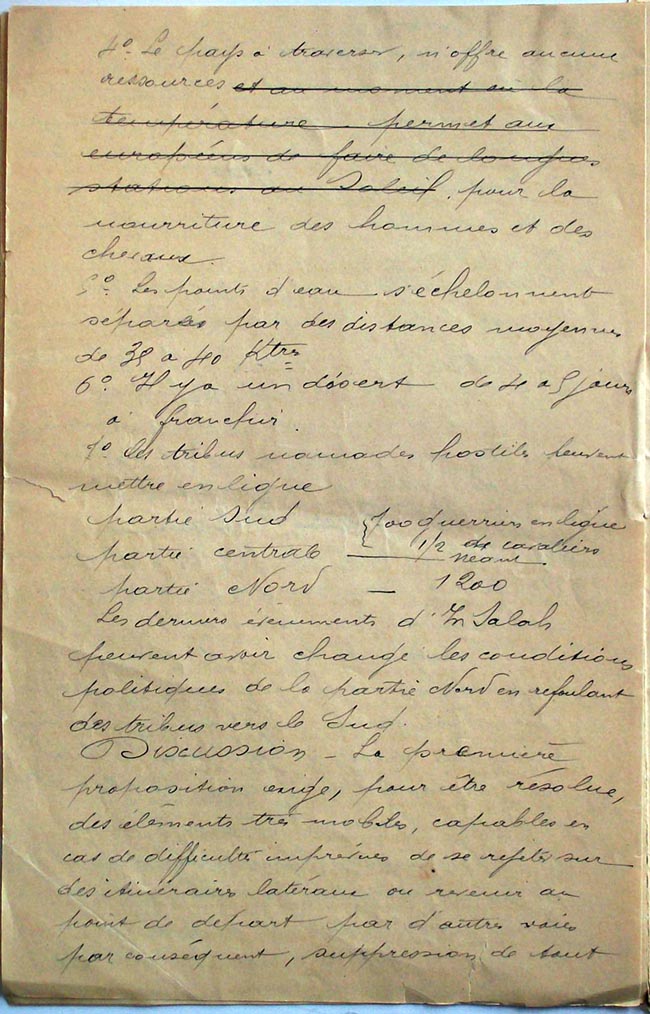 4º. Le pays à traverser, n'offre aucune
ressources et au moment où la
température permet aux
européens de faire de longues
stations au Soleil. pour la
nourriture des hommes et des
chevaux.
5º. Les points d'eau s'échelonnent
séparés par des distances moyennes
de 35 a 40 Ktres
6º. Il y a un désert de 4 a 5 jours
à franchir.
7º Les tribus nomades hostiles peuvent
mettre en ligne
partie Sud { 700 guerriers en ligne
1/2 de cavaliers
partie centrale — néant
partie Nord — 1200
Les derniers évènements d'In Salah
peuvent avoir changé les conditions
politiques de la partie Nord en refoulant
des tribus vers le Sud.
Discussion – La première
proposition exige, pour être résolue,
des éléments très mobiles, capables en
cas de difficultés imprévues de se rejeter sur
des itinéraires latéraux ou revenir au
point de départ par d'autres voies
par conséquent, suppression de tout